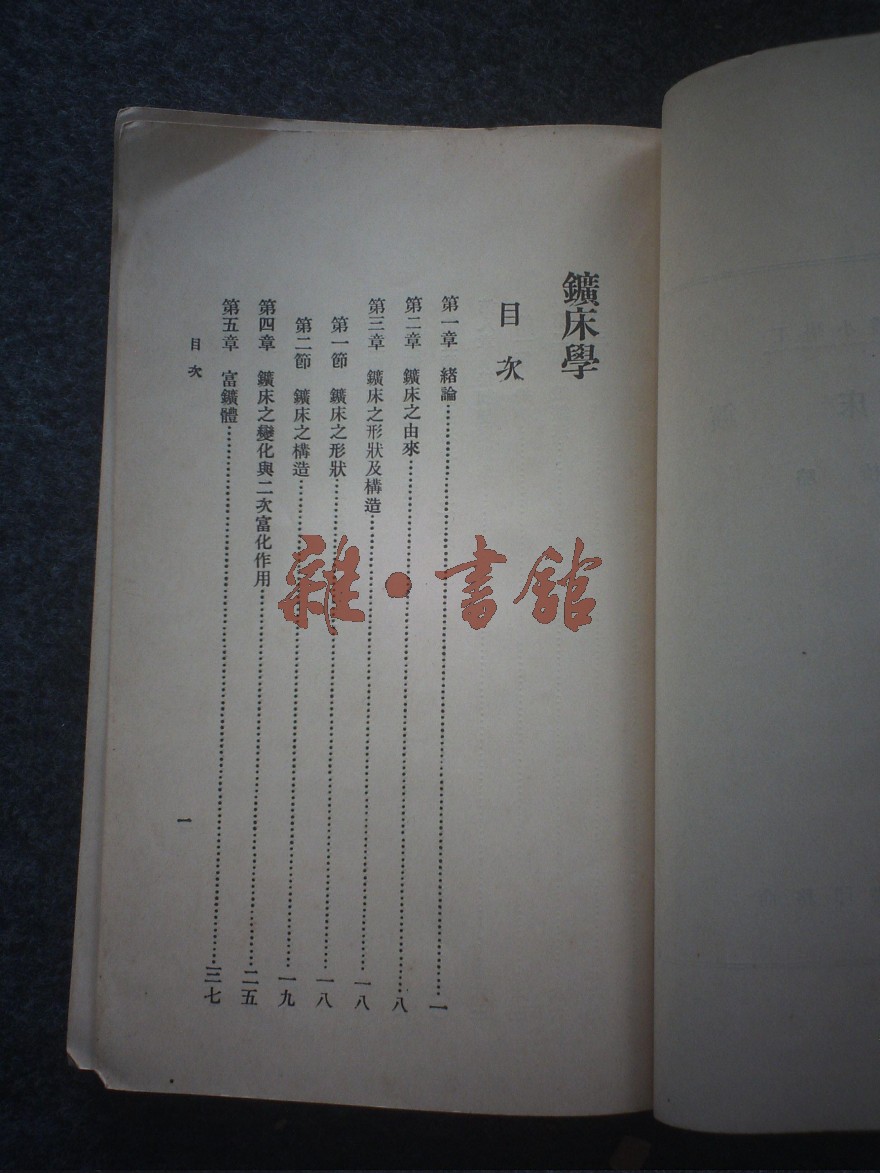 鑛床學
目次
第一章 緒論……一
第二章 鑛床之由來……八
第三章 鑛床之形狀及構造……一八
第一節 鑛床之形狀……一八
第二節 鑛床之構造……一九
第四章 鑛床之變化與二次富化作用……二五
第五章 富鑛體……三七
目次
一
雜·書館
床